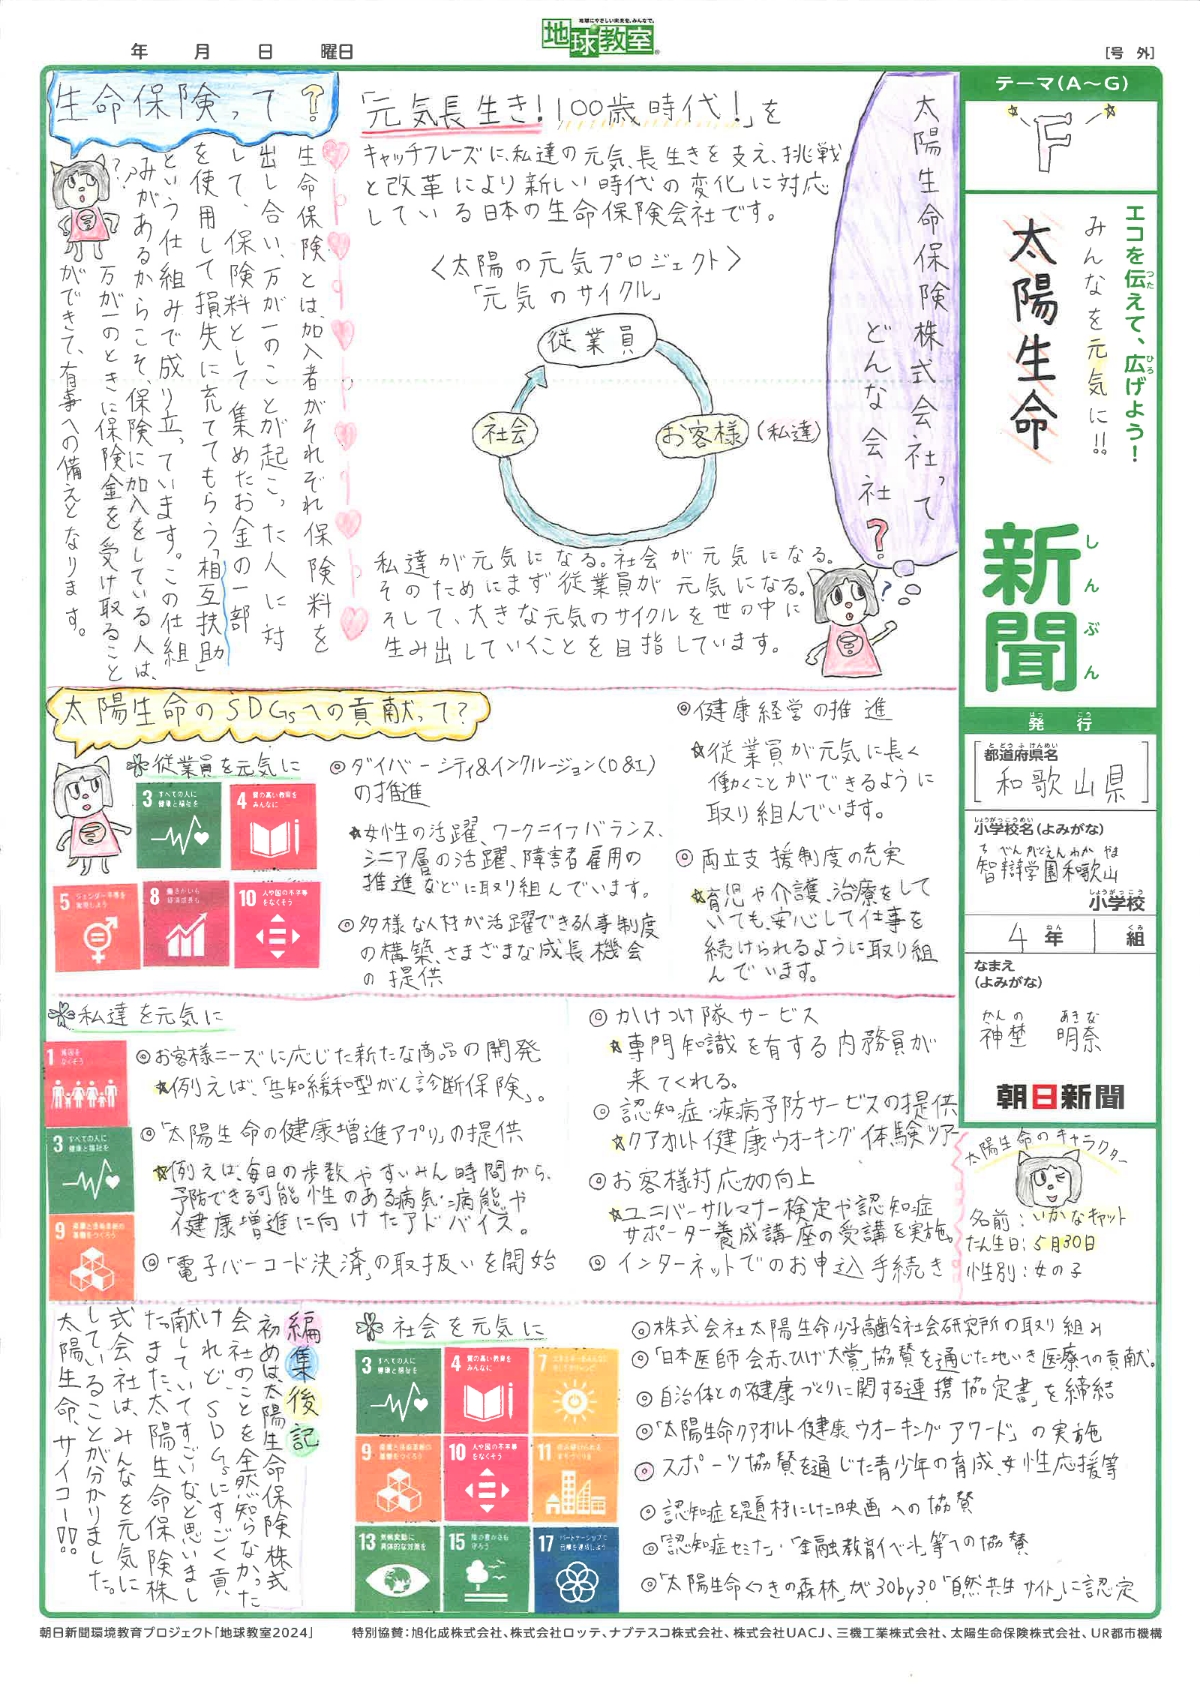 地球にやさしい未来を、みんなで。
地球教室
年 月 日 曜日
[号 外]
テーマ(A～G)
F
エコを伝えて、広げよう！
つた
ひろ
みんなを元気に!!
太陽生命
新聞
しんぶん
発行
はっこう
都道府県名
とどうふけんめい
和歌山県
小学校名(よみがな)
しょうがっこうめい
ちべんがくえんわかやま
智辯学園和歌山
しょうがっこう
小学校
4年 組
ねん くみ
なまえ
(よみがな)
かんの あきな
神埜 明奈
朝日新聞
太陽生命のキャラクター
名前：いかなキャット
たん生日：5月30日
性別：女の子
太陽生命保険株式会社って
どんな会社？
「元気長生き！100歳時代！」を
キャッチフレーズに、私達の元気、長生きを支え、挑戦
と改革により新しい時代の変化に対応
している日本の生命保険会社です。
〈太陽の元気プロジェクト〉
「元気のサイクル」
従業員
社会
お客様
(私達)
私達が元気になる。社会が元気になる。
そのためにまず従業員が元気になる。
そして、大きな元気のサイクルを世の中に
生み出していくことを目指しています。
生命保険って？
生命保険とは、加入者がそれぞれ保険料を
出し合い、万が一のことが起こった人に対
して、保険料として集めたお金の一部
を使用して損失に充ててもらう「相互扶助」
という仕組みで成り立っています。この仕組
みがあるからこそ、保険に加入をしている人は、
万が一のときに保険金を受け取ること
ができて、有事への備えとなります。
太陽生命のSDGsへの貢献って？
従業員を元気に
3 すべての人に
健康と福祉を
4 質の高い教育を
みんなに
5 ジェンダー平等を
実現しよう
8 働きがいも
経済成長も
10 人や国の不平等
をなくそう
◎ダイバーシティ&インクルージョン(D&I)
の推進
☆女性の活躍、ワークライフバランス、
シニア層の活躍、障害者雇用の
推進などに取り組んでいます。
◎多様な人材が活躍できる人事制度
の構築、さまざまな成長機会
の提供
◎健康経営の推進
☆従業員が元気に長く
働くことができるように
取り組んでいます。
◎両立支援制度の充実
☆育児や介護、治療をして
いても、安心して仕事を
続けられるように取り組
んでいます。
私達を元気に
1 貧困を
なくそう
3 すべての人に
健康と福祉を
9 産業と技術革新の
基盤をつくろう
◎お客様ニーズに応じた新たな商品の開発
☆例えば、「告知緩和型がん診断保険」。
◎「太陽生命の健康増進アプリ」の提供
☆例えば、毎日の歩数やすいみん時間から、
予防できる可能性のある病気・病態や
健康増進に向けたアドバイス。
◎「電子バーコード決済」の取扱いを開始
◎かけつけ隊サービス
☆専門知識を有する内務員が
来てくれる。
◎認知症・疾病予防サービスの提供
☆クアオルト健康ウオーキング体験ツアー
◎お客様対応力の向上
☆ユニバーサルマナー検定や認知症
サポーター養成講座の受講を実施。
◎インターネットでのお申込手続き
社会を元気に
3 すべての人に
健康と福祉を
4 質の高い教育を
みんなに
7
9 産業と技術革新の
基盤をつくろう
10 人や国の不平等
をなくそう
11 住み続けられる
まちづくりを
13 気候変動に
具体的な対策を
15 陸の豊かさも
守ろう
17 パートナーシップで
目標を達成しよう
◎株式会社太陽生命少子高齢社会研究所の取り組み
◎「日本医師会赤ひげ大賞」協賛を通じた地いき医療への貢献。
◎自治体との「健康づくりに関する連携協定書」を締結
◎「太陽生命クアオルト健康ウオーキングアワード」の実施
◎スポーツ協賛を通じた青少年の育成、女性応援等
◎認知症を題材にした映画への協賛
◎「認知症セミナー・「金融教育イベント」等への協賛
◎「太陽生命くつきの森林」が30by30「自然共生サイト」に認定
編集後記
初めは太陽生命保険株式
会社のことを全然知らなかった
けれど、SDGsにすごく貢
献していてすごいなと思いまし
た。また、太陽生命保険株
式会社は、みんなを元気に
していることが分かりました。
太陽生命、サイコー!!!
朝日新聞環境教育プロジェクト「地球教室2024」 特別協賛：旭化成株式会社、株式会社ロッテ、ナブテスコ株式会社、株式会社UACJ、三機工業株式会社、太陽生命保険株式会社、UR都市機構